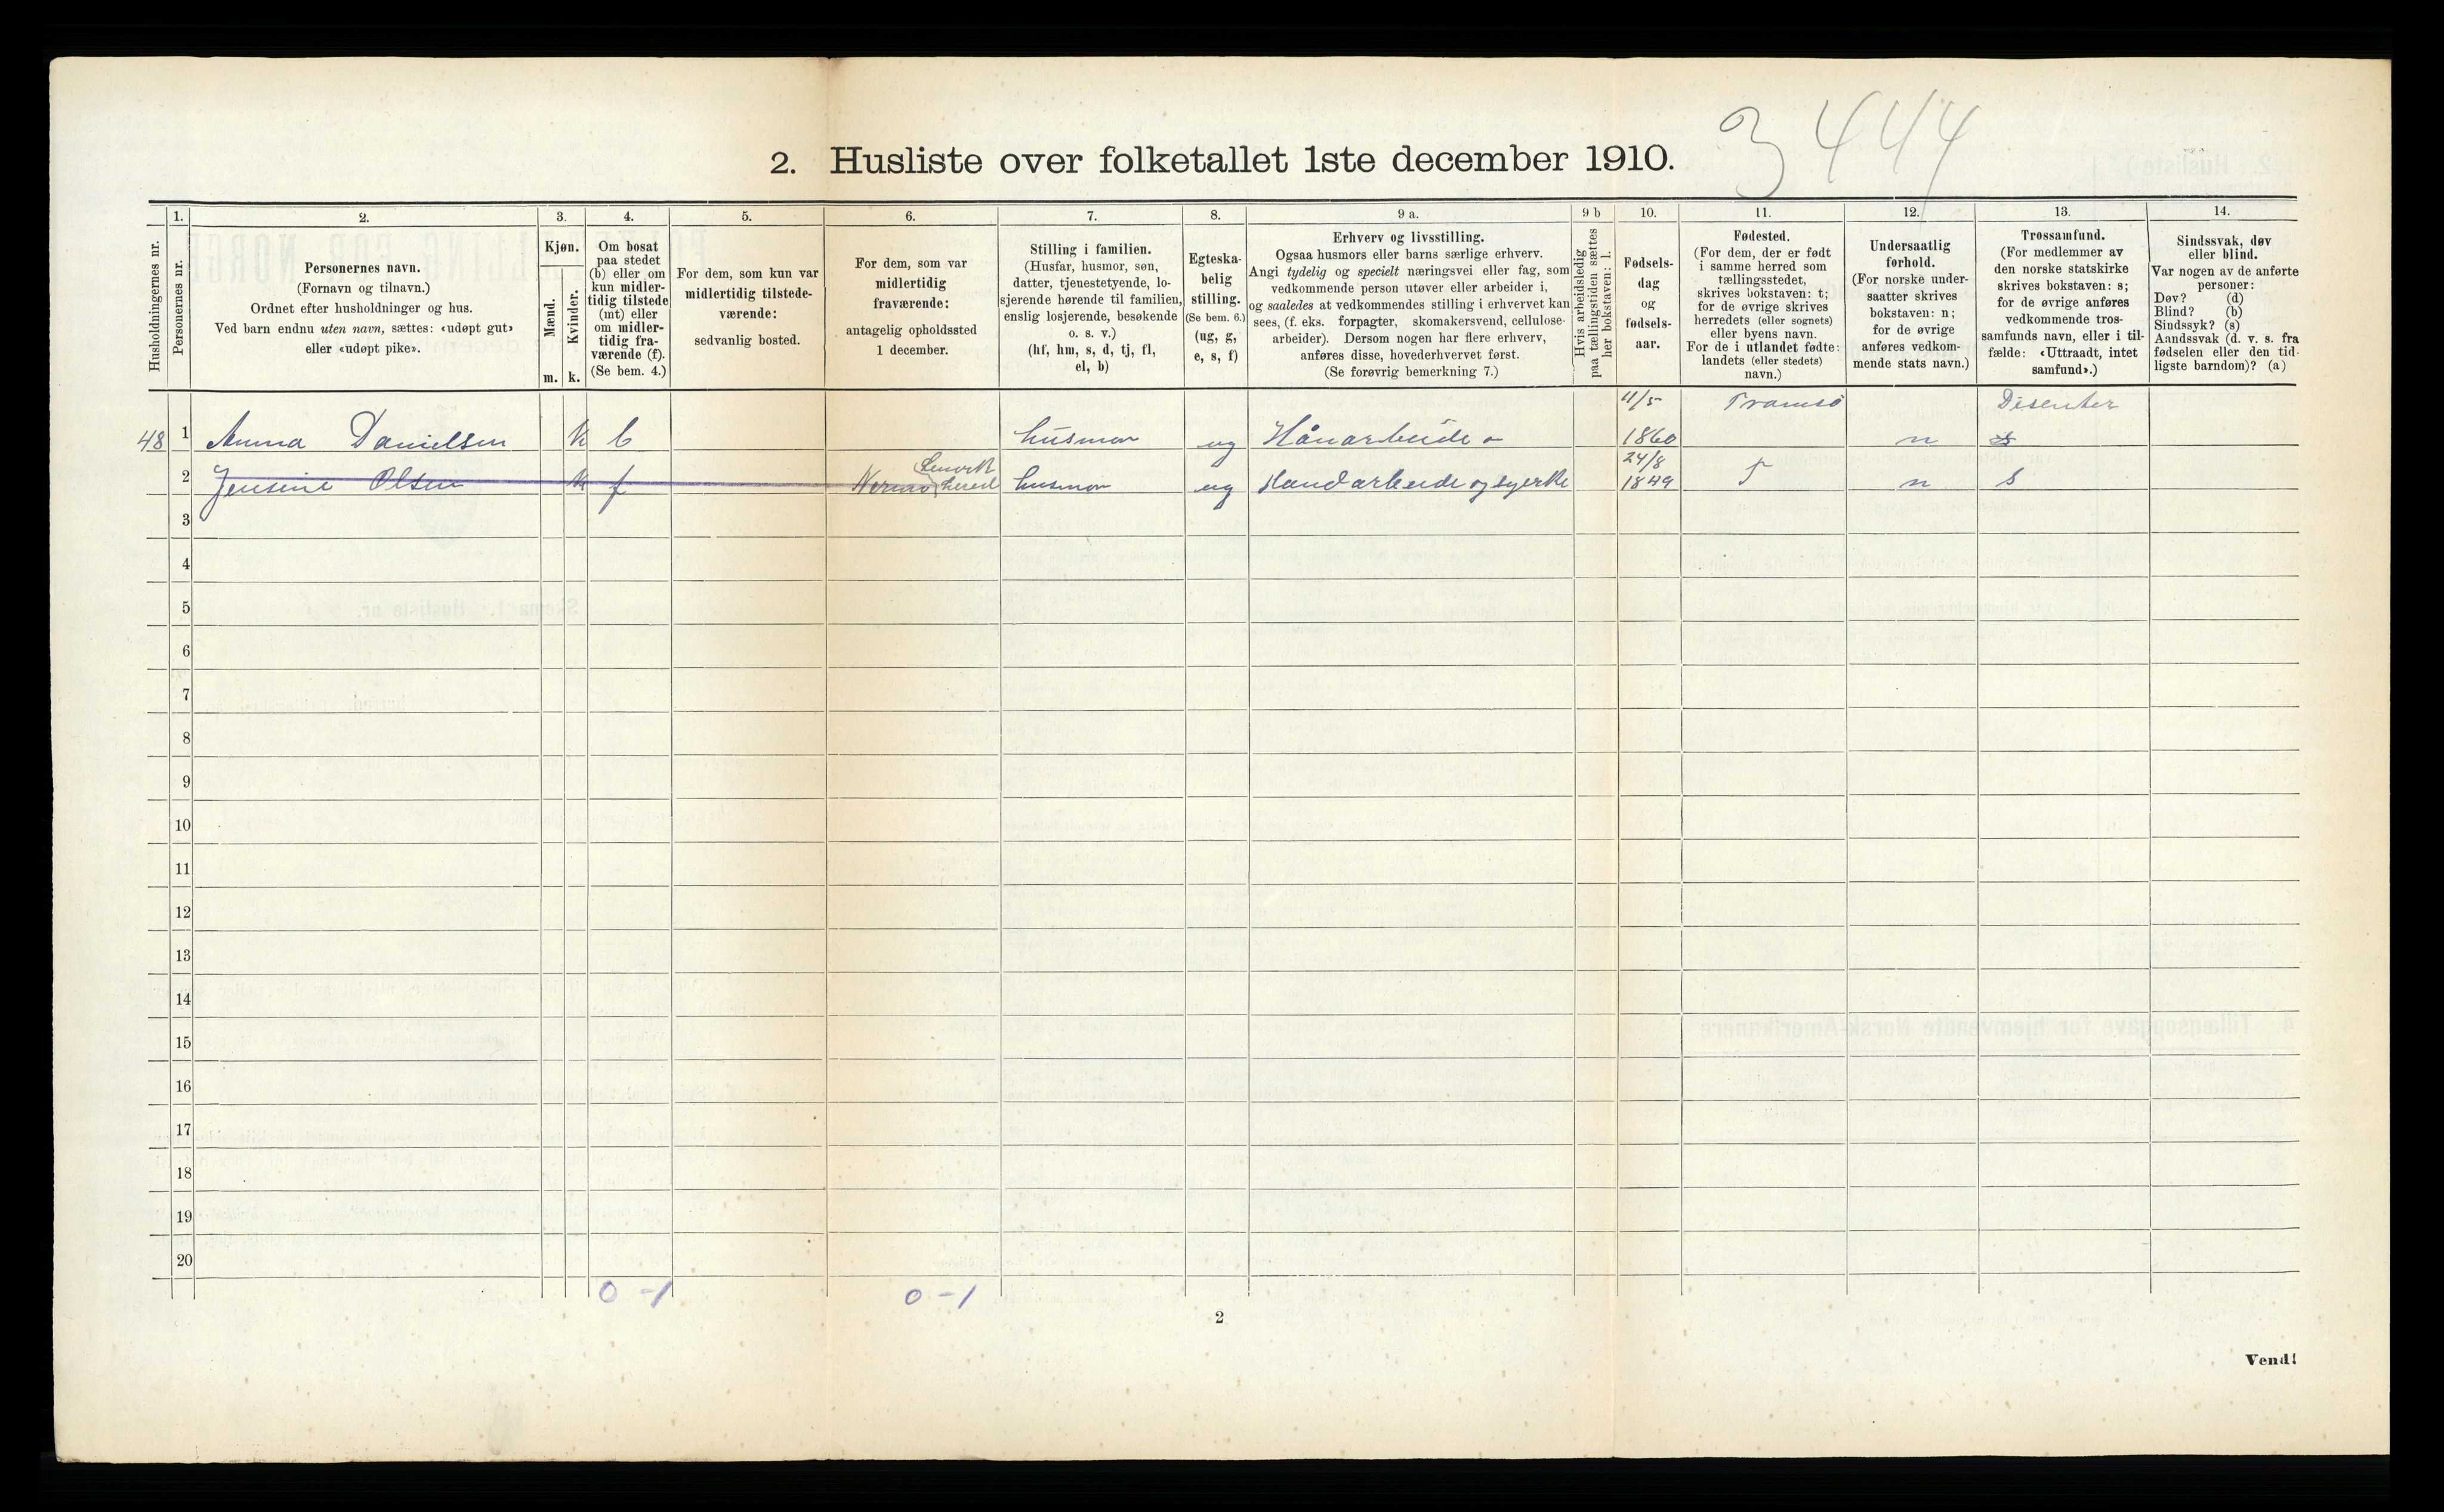 3444
2. Husliste over folketallet 1ste december 1910.
Husholdningernes nr.
1.
Personernes nr.
2.
Personernes navn.
(Fornavn og tilnavn.)
Ordnet efter husholdninger og hus.
Ved barn endnu uten navn, sættes: «udøpt gut»
eller «udøpt pike».
3.
Kjøn.
Mænd.
Kvinder.
m. k.
4.
Om bosat
paa stedet
(b) eller om
kun midler-
tidig tilstede
(mt) eller
om midler-
tidig fra-
værende (f).
(Se bem. 4.)
5.
For dem, som kun var
midlertidig tilstede-
værende:
sedvanlig bosted.
6.
For dem, som var
midlertidig
fraværende:
antagelig opholdssted
1 december.
7.
Stilling i familien.
(Husfar, husmor, søn,
datter, tjenestetyende, lo-
sjerende hørende til familien,
enslig losjerende, besøkende
o. s. v.)
(hf, hm, s, d, tj, fl,
el, b)
8.
Egteska-
belig
stilling.
(Se bem. 6.)
(ug, g,
e, s, f)
9 a.
Erhverv og livsstilling.
Ogsaa husmors eller barns særlige erhverv.
Angi tydelig og specielt næringsvei eller fag, som
vedkommende person utøver eller arbeider i,
og saaledes at vedkommendes stilling i erhvervet kan
sees, (f. eks. forpagter, skomakersvend, cellulose-
arbeider). Dersom nogen har flere erhverv,
anføres disse, hovederhvervet først.
(Se forøvrig bemerkning 7.)
9 b
Hvis arbeidsledig
paa tællingstiden sættes
her bokstaven: l.
10.
Fødsels-
dag
og
fødsels-
aar.
11.
Fødested.
(For dem, der er født
i samme herred som
tællingsstedet,
skrives bokstaven: t;
for de øvrige skrives
herredets (eller sognets)
eller byens navn.
For de i utlandet fødte:
landets (eller stedets)
navn.)
12.
Undersaatlig
forhold.
(For norske under-
saatter skrives
bokstaven: n;
for de øvrige
anføres vedkom-
mende stats navn.)
13.
Trossamfund.
(For medlemmer av
den norske statskirke
skrives bokstaven: s;
for de øvrige anføres
vedkommende tros-
samfunds navn, eller i til-
fælde: «Uttraadt, intet
samfund».)
14.
Sindssvak, døv
eller blind.
Var nogen av de anførte
personer:
Døv? (d)
Blind? (b)
Sindssyk? (s)
Aandssvak (d. v. s. fra
fødselen eller den tid-
ligste barndom)? (a)
11/5 Tromsö Disenter
48 1 Anna Danielsen K b husmor ug Hånarbeide 1860 n s
Lenvik 24/8
2 Jensine Olsen K f hered husmor ug Handarbeide og 1849 T n s
3
4
5
6
7
8
9
10
11
12
13
14
15
16
17
18
19
20
0 - 1 0 - 1
2
Vend!